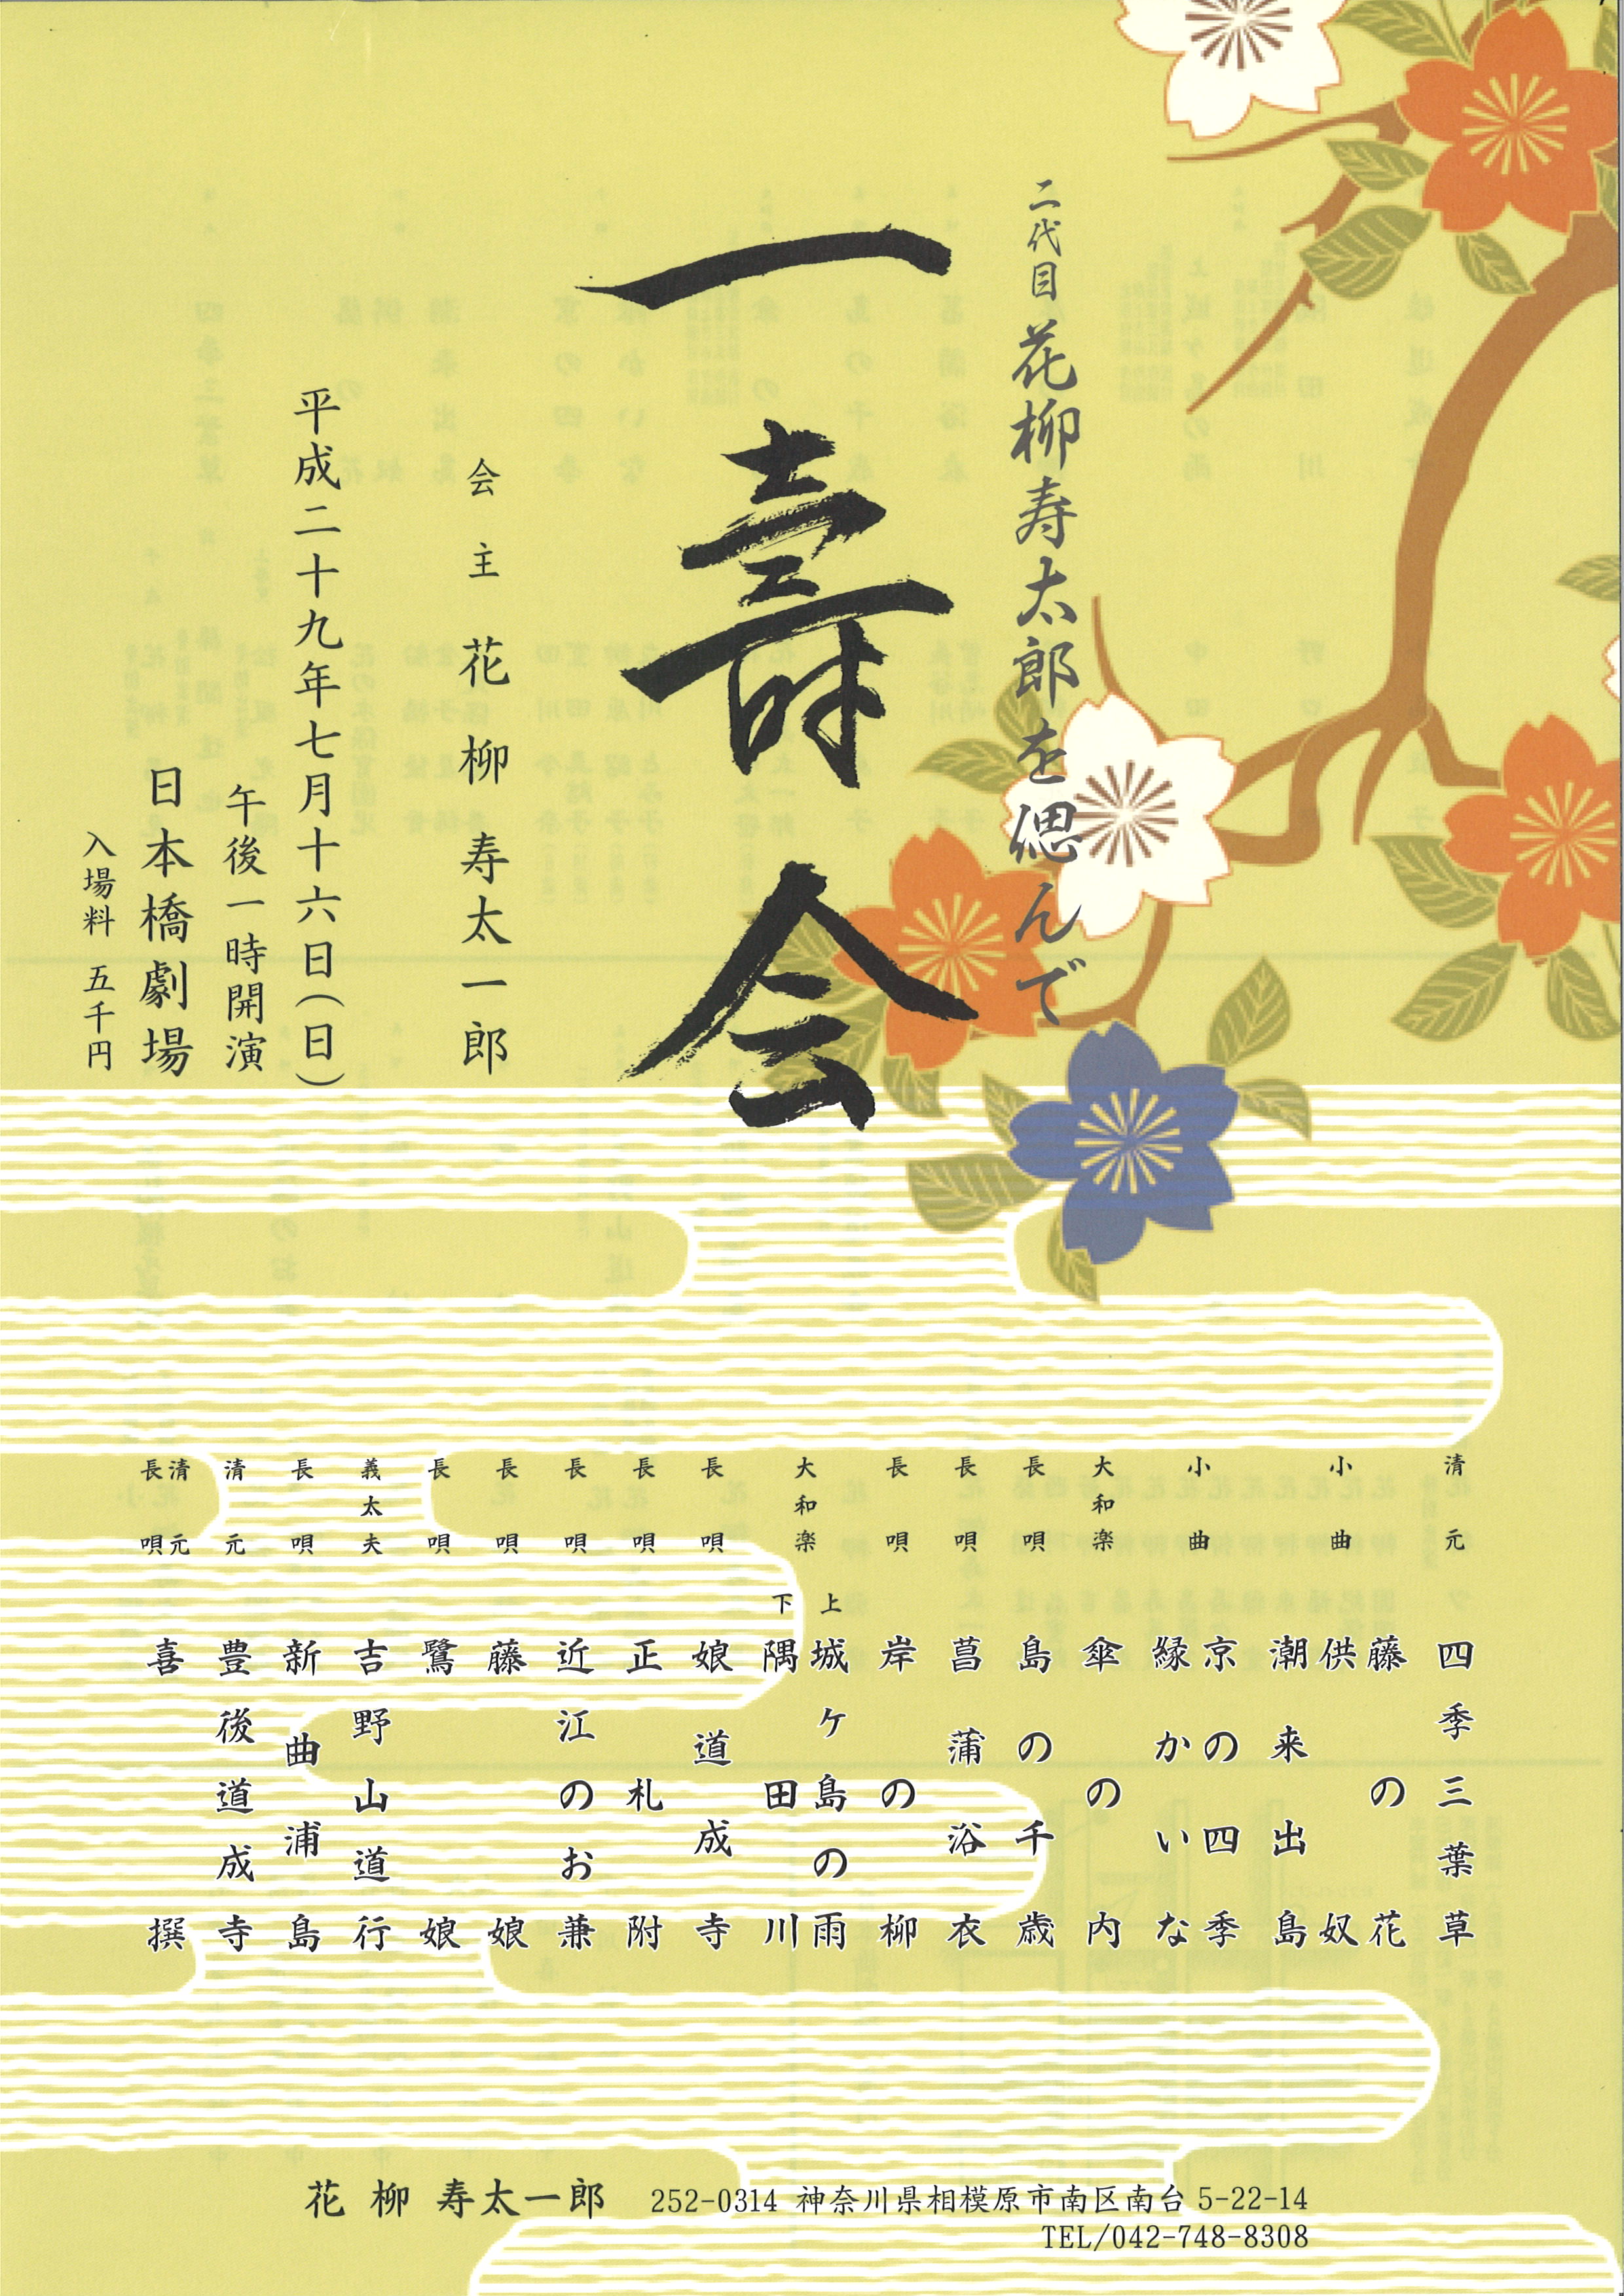 二代目 花柳寿太郎を偲んで
一壽会
会主 花柳 寿太一郎
平成二十九年七月十六日(日)
午後一時開演
日本橋劇場
入場料 五千円
清元 四季三葉草
小曲 藤の花
供奴
潮来出島
小曲 京の四季
縁かいな
大和楽 傘の内
長唄 島の千歳
長唄 菖蒲浴衣
長唄 岸の柳
大和楽 上 城ケ島の雨
下 隅田川
長唄 娘道成寺
長唄 正札附
長唄 近江のお兼
長唄 藤娘
長唄 鷺娘
義太夫 吉野山道行
長唄 新曲浦島
清元 豊後道成寺
清元 長唄 喜撰
花柳 寿太一郎 252-0314 神奈川県相模原市南区南台 5-22-14
TEL/042-748-8308